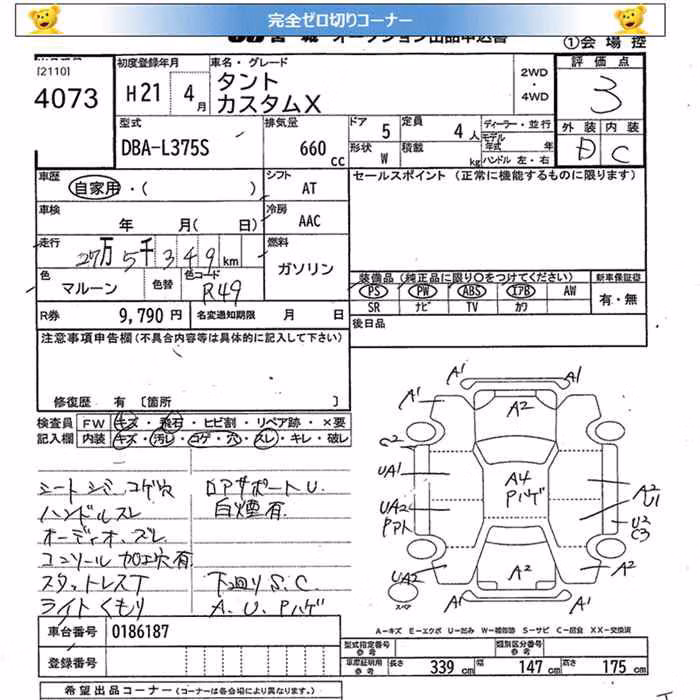 完全ゼロ切りコーナー
宮城 オークション出品申込書
①会場控
[2110]
4073
初度登録年月
H21 4月
車名・グレード
タント
カスタムX
2WD・4WD
評価点
3
外装 内装
D C
型式
DBA-L375S
排気量
660 cc
ドア 5
定員 4人
形状 W
積載 kg
ディーラー・並行
モデル年式 年
ハンドル 左・右
車歴
自家用・( )
シフト AT
セールスポイント (正常に機能するものに限ります)
車検
年 月( 日)
冷房 AAC
走行
27万5千349km
燃料
ガソリン
色
マルーン
色替
色コード
R49
装備品 (純正品に限り○をつけてください)
新車保証書
PS PW ABS エアB AW
SR ナビ TV カワ
有・無
R券 9,790円
名変通知期限 月 日
後日品
注意事項申告欄 (不具合内容等は具体的に記入して下さい)
修復歴 有 [箇所
検査員記入欄
FW キズ・飛石・ヒビ割・リペア跡・×要
内装 キズ・汚レ・コゲ・穴・スレ・キレ・破レ
シートシミ、コゲ穴
ロアサポートU.
ハンドルスレ
白煙有
オーディオ、ズレ
コンソール加工穴有
スタットレスT
下廻りS.C
ライトくもり
A.U.Pハゲ
A1
A1
A1
A1
A2
C2
UA1
A4
Pハゲ
A2
U1
UA2
Pアト
U2
C3
UA2
A2
A2
スペア
A1
A1
A-キズ E-エクボ U-凹み W-補修跡 S-サビ C-腐食 XX-交換済
車台番号 0186187
登録番号
型式指定番号
類別区分番号
車庫証明用参考
長さ 339cm 幅 147cm 高さ 175cm
希望出品コーナー(コーナーは各会場により異なります。)